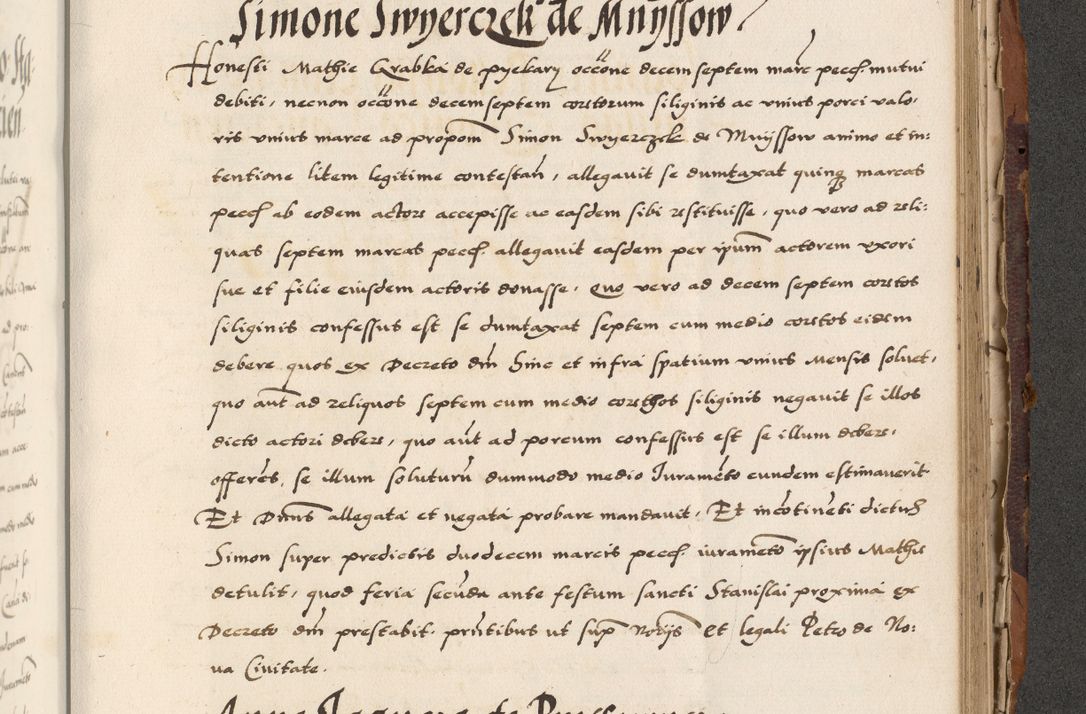 Simone Swyerczek de Muyssow
Honesti Mathie Grabka de pyekary occone decem septem marc pecc mutui
debiti, necnon occone decemseptem coretorum siliginis ac unius porci valo:
ris unius marce ad propom Simon Swyerczek de Muyssow animo et in:
tentione litem legitime contestan, allegavit se dumtaxat quinq marcas
pecc ab eodem actore accepisse ac easdem sibi restituisse, quo vero ad reli:
quas septem marcas pecc. allegavit easdem per ipum actorem uxori
sue et filie eiusdem actoris donasse, Quo vero ad decem septem coretos
siliginis confessus est se dumtaxat septem cum medio coretos eidem
debere quos ex Decreto dm hinc et infra spatium unius Mensis solvet,
quo aut ad reliquos septem cum medio corethos siliginis negavit se illos
dicto actori debere, quo aut ad porcum confessus est se illum debere,
offerens, se illum soluturu dummodo medio Juramento eundem estimaverit
Et Dnus allegata et negata probare mandavit, Et incotineti dictus
Simon super predictis duodecem marcis pecc. iurameto ipsius Mathie
detulit, quod feria secuda ante festum sancti Stanislai proxima ex
Decreto dm prestabit. prntibus ut sup Notijs Et legali Petro de No:
va Civitate.